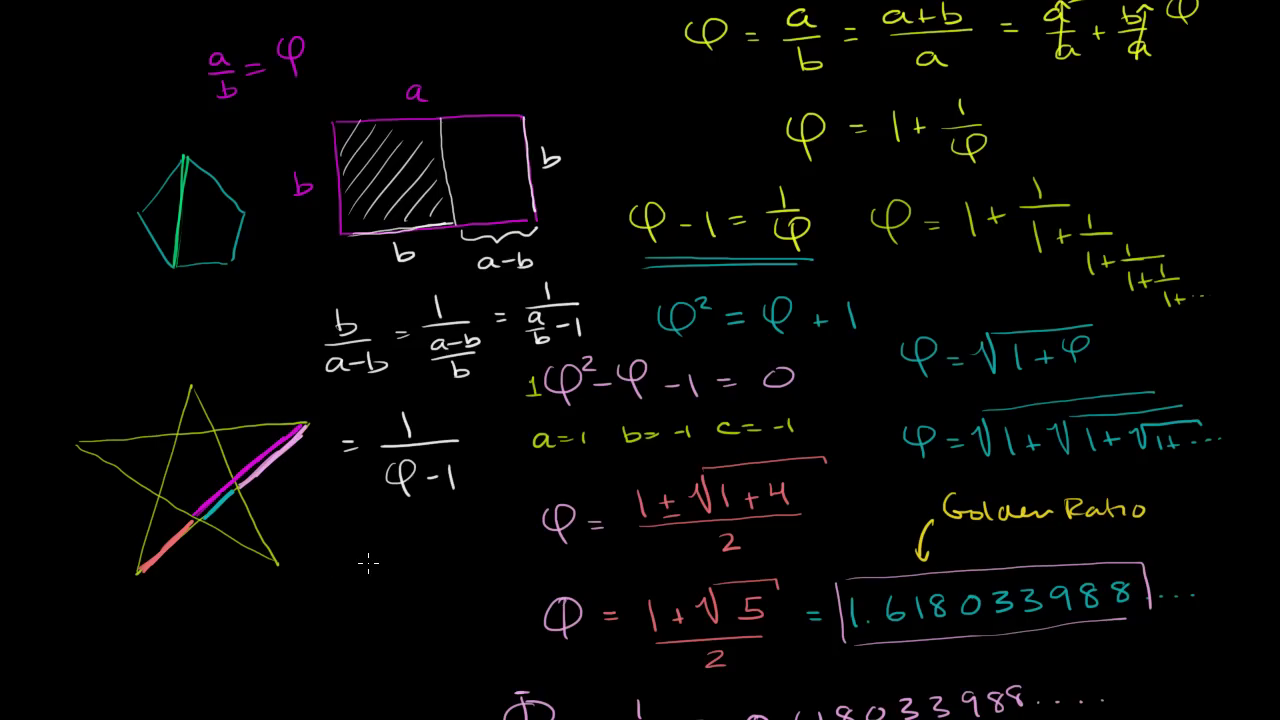 a/b = φ
a
b
b
b
a-b
b/(a-b) = 1/((a-b)/b) = 1/(a/b - 1)
= 1/(φ-1)
φ = a/b = (a+b)/a = a/a + b/a φ
φ = 1 + 1/φ
φ - 1 = 1/φ
φ = 1 + 1/(1 + 1/(1 + 1/(1 + 1/(1 + ...
φ² = φ + 1
φ = √(1+φ)
1φ² - φ - 1 = 0
a=1 b=-1 c=-1
φ = √(1+√(1+√(1+...
φ = (1±√(1+4))/2
Golden Ratio
φ = (1+√5)/2 = 1.618033988....